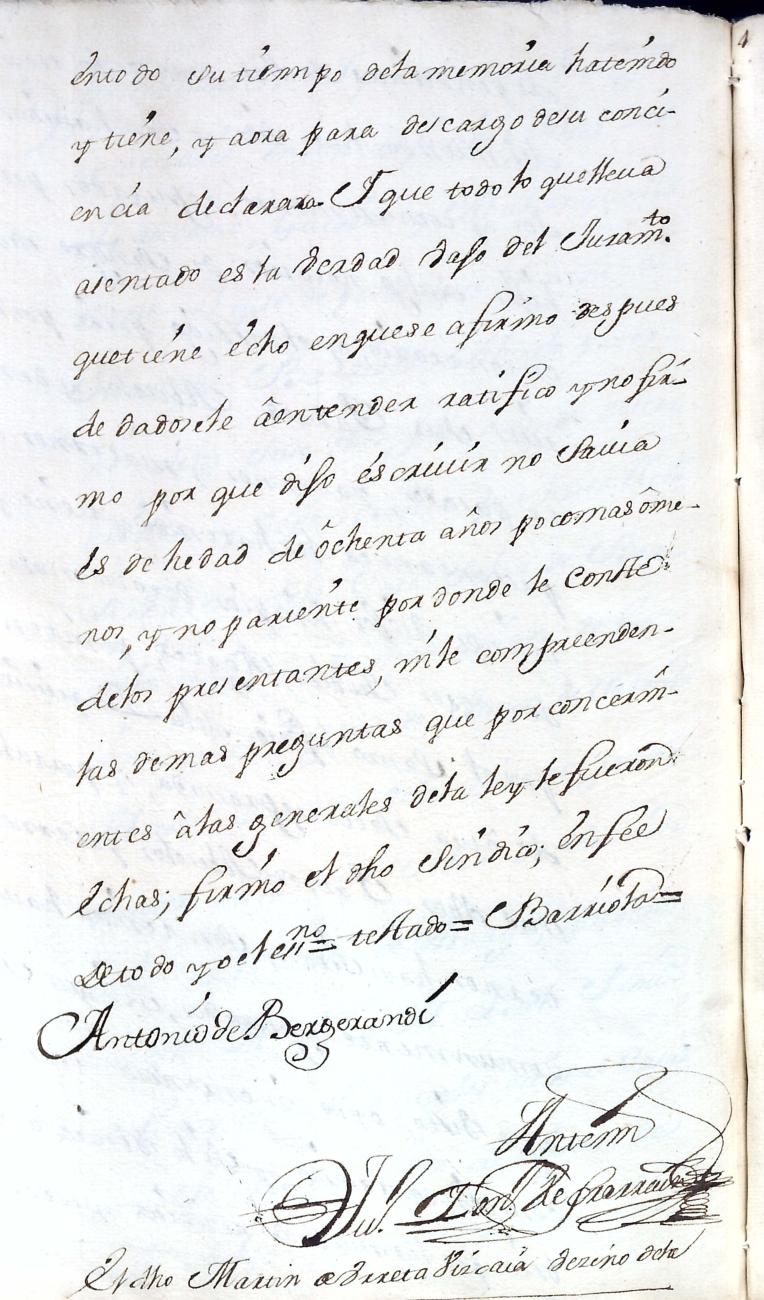 entodo su tiempo dela memoria hateni do
y tiene, y aora para descargo desu conci-
encia declarara. I que todo lo que lleua
asentado es la verdad vaso del Juram.to
quetiene echo enquese afirmo despues
de dadosele â entender ratifico y no fir-
mo por que diso escriuir no sauia
es de hedad de ôchenta años poco mas ôme-
nos, y no pariente por donde le conste
delos presentantes, nile compreenden-
las demas preguntas que por concerni-
entes âlas generales dela ley le fueron
echas; firmo el dho Sindico; enfee
de todo yo el essno = testado = Barriola =
Antonio de Bergerandi
Antemi
El dho Martin de Vrreta Vizcaia vezino dela